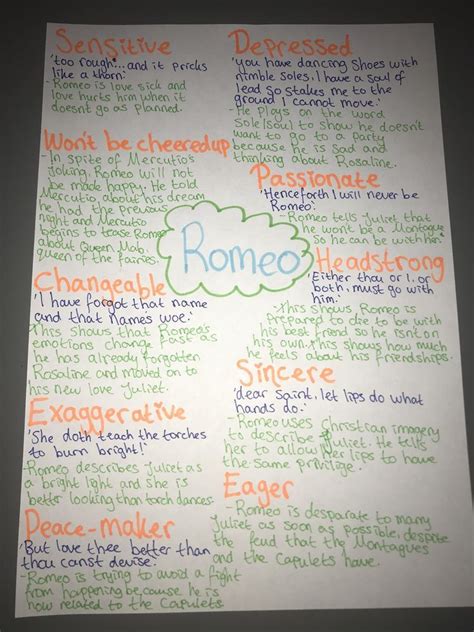 Sensitive
'too rough...and it pricks
like a thorn.'
- Romeo is love sick and
love hurts him when it
doesnt go as planned.
Won't be cheeredup
- In spite of Mercutio's
joking, Romeo will not
be made happy. He told
Mercutio about his dream
he had the previous
night and Mercutio
begins to tease Romeo
about Queen Mab,
queen of the fairies.
Changeable
'I have forgot that name
and that names woe.'
This shows that Romeo's
emotions change fast as
he has already forgotten
Rosaline and moved on to
his new love Juliet.
Exaggerative
'She doth teach the torches
to burn bright!'
- Romeo describes Juliet as
a bright light and she is
better looking than torch dances.
Peace-maker
'But love thee better than
thou canst devise.'
- Romeo is trying to avoid a fight
from happening because he is
now related to the Capulets.
Romeo
Depressed
'you have dancing Shoes with
nimble Soles. I have a soul of
lead so stakes me to the
ground I cannot move.'
- He plays on the word
Sole/soul to show he doesn't
want to go to a party
because he is sad and
thinking about Rosaline.
Passionate
'Henceforth I will never be
Romeo.'
- Romeo tells Juliet that
he won't be a Montague
so he can be with her.
Headstrong
'Either thou or I, or
both, must go with
him.'
- This shows Romeo is
prepared to die to be with
his best friend so he isnt on
his own. This shows how much
he feels about his friendships.
Sincere
'dear Saint, let lips do what
hands do.'
- Romeo uses Christian imagery
to describe Juliet. He tells
her to allow her lips to have
the same privilige.
Eager
- Romeo is desparate to marry
Juliet, as soon as possible, despite
the feud that the Montagues
and the Capulets have.